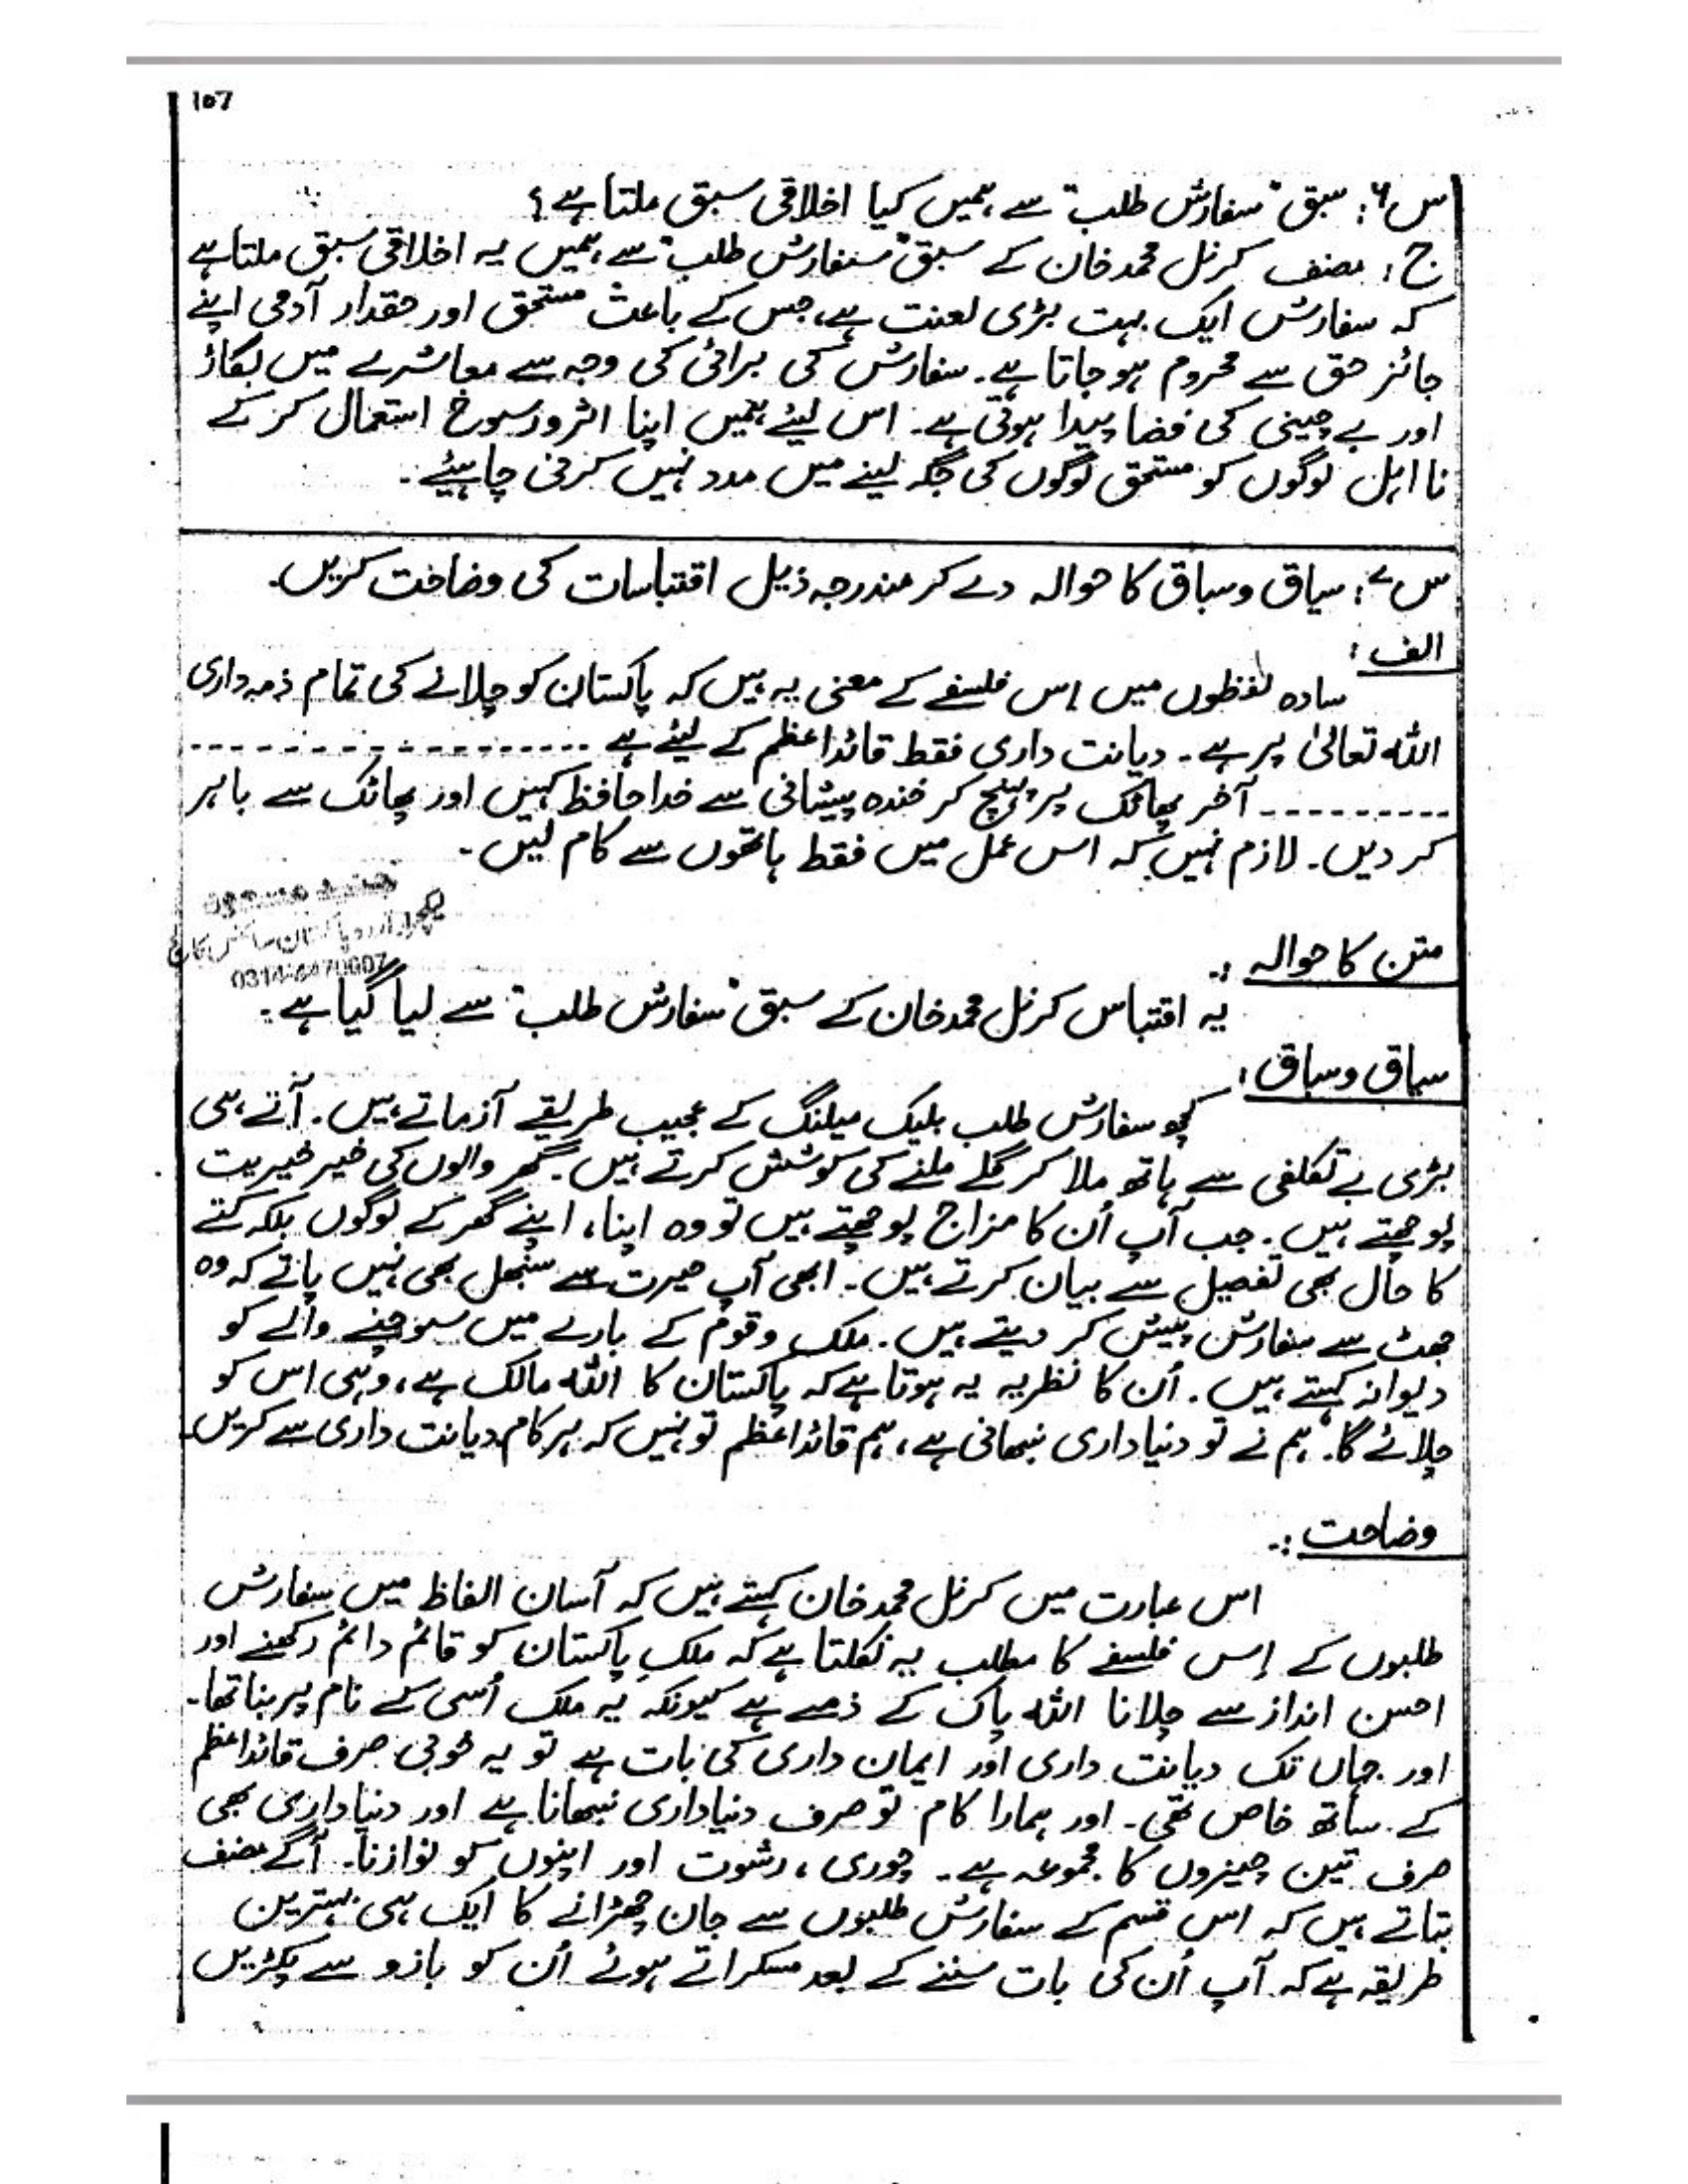 107
س۶: سبق "سفارش طلب" سے ہمیں کیا اخلاقی سبق ملتا ہے؟
ج: مصنف کرنل محمد خان کے سبق "سفارش طلب" سے ہمیں یہ اخلاقی سبق ملتا ہے
کہ سفارش ایک بہت بڑی لعنت ہے، جس کے باعث مستحق اور حقدار آدمی اپنے
جائز حق سے محروم ہو جاتا ہے۔ سفارش کی برائی کی وجہ سے معاشرے میں بگاڑ
اور بے چینی کی فضا پیدا ہوتی ہے۔ اس لیئے ہمیں اپنا اثر و رسوخ استعمال کر کے
نا اہل لوگوں کو مستحق لوگوں کی جگہ لینے میں مدد نہیں کرنی چاہیئے۔
س۷: سیاق و سباق کا حوالہ دے کر مندرجہ ذیل اقتباسات کی وضاحت کریں۔
الف:
سادہ لفظوں میں اِس فلسفے کے معنی یہ ہیں کہ پاکستان کو چلانے کی تمام ذمہ داری
اللہ تعالیٰ پر ہے۔ دیانت داری فقط قائداعظم کے لیئے ہے ------------------
---------- آخر پھاٹک پر پہنچ کر خندہ پیشانی سے خدا حافظ کہیں اور پھاٹک سے باہر
کر دیں۔ لازم نہیں کہ اس عمل میں فقط ہاتھوں سے کام لیں۔
لیکچرار اردو پاکستان سائنس کالج
متن کا حوالہ :۔
یہ اقتباس کرنل محمد خان کے سبق "سفارش طلب" سے لیا گیا ہے۔
سیاق و سباق:
کچھ سفارش طلب بلیک میلنگ کے عجیب طریقے آزماتے ہیں۔ آتے ہی
بڑی بے تکلفی سے ہاتھ ملا کر گلے ملنے کی کوشش کرتے ہیں۔ گھر والوں کی خیر خیریت
پوچھتے ہیں۔ جب آپ اُن کا مزاج پوچھتے ہیں تو وہ اپنا، اپنے گھر کے لوگوں بلکہ کتے
کا حال بھی تفصیل سے بیان کرتے ہیں۔ ابھی آپ حیرت سے سنبھل بھی نہیں پاتے کہ وہ
جھٹ سے سفارش پیش کر دیتے ہیں۔ ملک و قوم کے بارے میں سوچنے والے کو
دیوانہ کہتے ہیں۔ اُن کا نظریہ یہ ہوتا ہے کہ پاکستان کا اللہ مالک ہے، وہی اس کو
چلائے گا۔ ہم نے تو دنیا داری نبھانی ہے، ہم قائداعظم تو نہیں کہ ہر کام دیانت داری سے کریں۔
وضاحت :۔
اس عبارت میں کرنل محمد خان کہتے ہیں کہ آسان الفاظ میں سفارش
طلبوں کے اِس فلسفے کا مطلب یہ نکلتا ہے کہ ملکِ پاکستان کو قائم دائم رکھنے اور
احسن انداز سے چلانا اللہ پاک کے ذمے ہے کیونکہ یہ ملک اُسی کے نام پر بنا تھا۔
اور جہاں تک دیانت داری اور ایمان داری کی بات ہے تو یہ خوبی صرف قائداعظم
کے ساتھ خاص تھی۔ اور ہمارا کام تو صرف دنیاداری نبھانا ہے اور دنیاداری بھی
صرف تین چیزوں کا مجموعہ ہے۔ چوری، رشوت اور اپنوں کو نوازنا۔ آگے مصنف
بتاتے ہیں کہ اس قسم کے سفارش طلبوں سے جان چھڑانے کا ایک ہی بہترین
طریقہ ہے کہ آپ اُن کی بات سننے کے بعد مسکراتے ہوئے اُن کو بازو سے پکڑیں